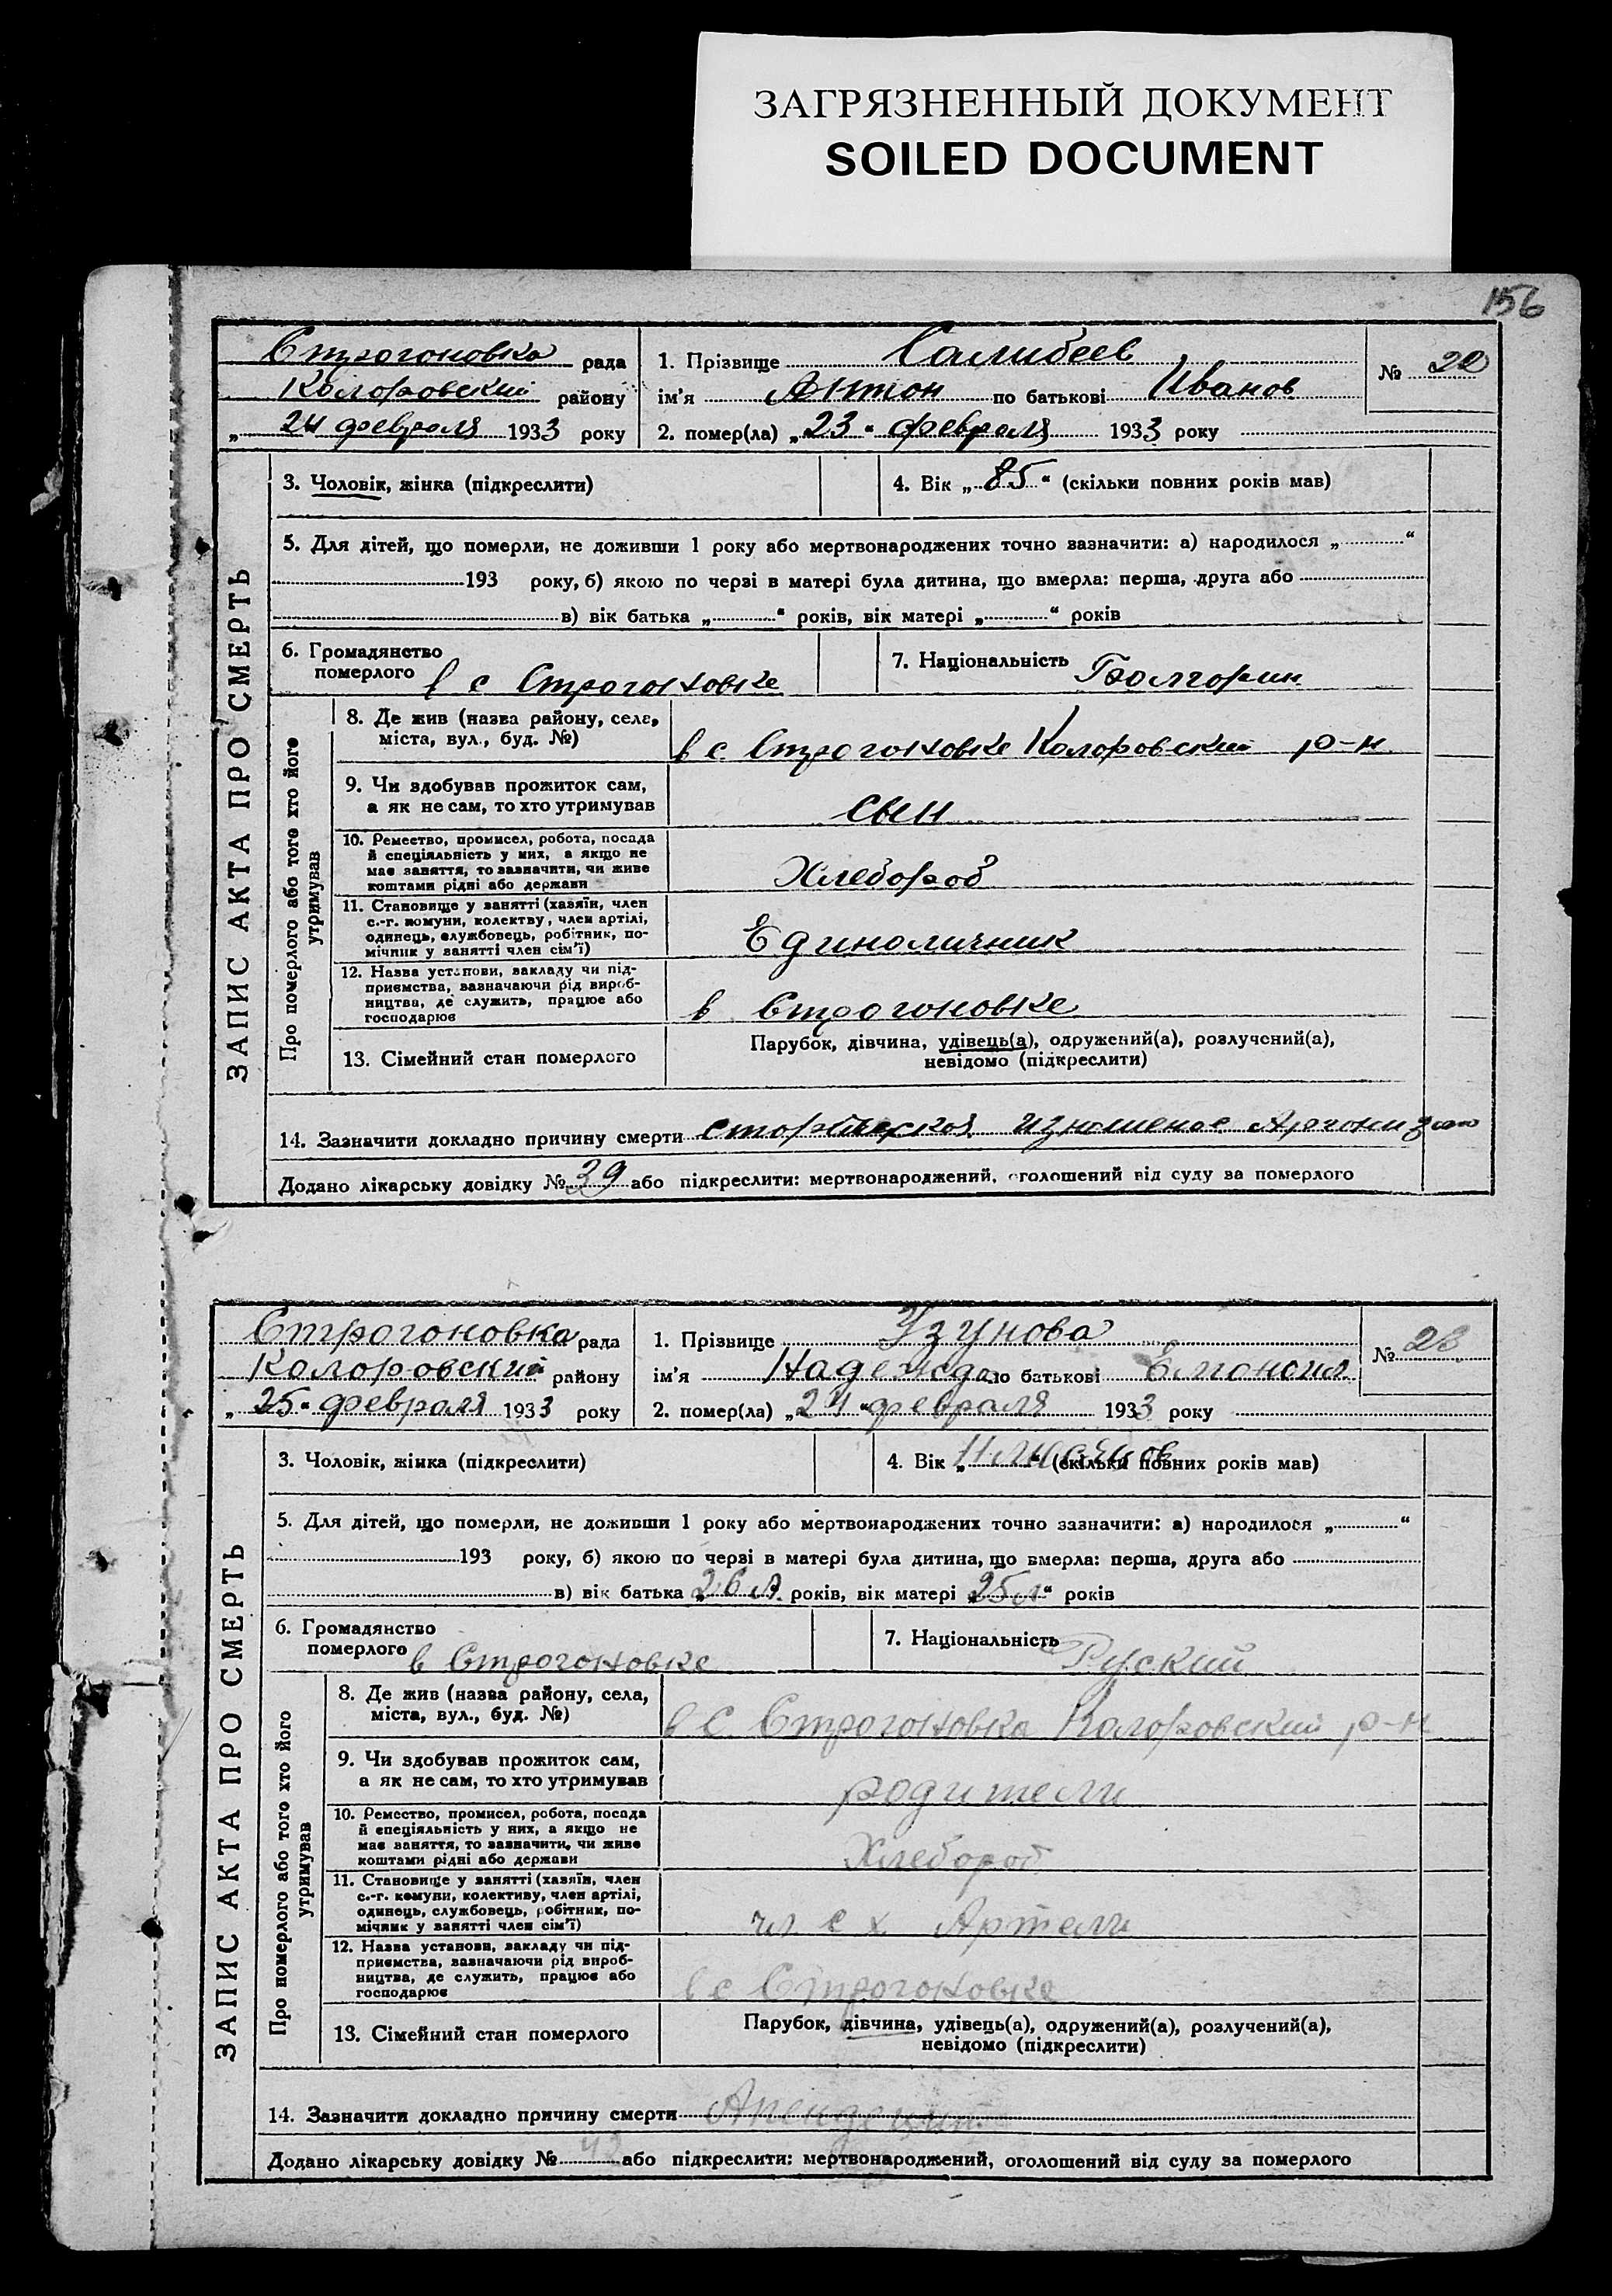 ЗАГРЯЗНЕННЫЙ ДОКУМЕНТ
SOILED DOCUMENT
156
Строгоновка рада
Коларовский району
„ 24 февраля 1933 року
1. Прізвище Салибеев
ім'я Антон по батькові Иванов
2. помер(ла) „23“ февраля 1933 року
№ 22
ЗАПИС АКТА ПРО СМЕРТЬ
3. Чоловік, жінка (підкреслити)
4. Вік „85“ (скільки повних років мав)
5. Для дітей, що померли, не доживши 1 року або мертвонароджених точно зазначити: а) народилося „ “
193 року, б) якою по черзі в матері була дитина, що вмерла: перша, друга або
в) вік батька „ “ років, вік матері „ “ років
6. Громадянство
померлого в с Строгоновке
7. Національність Болгорин
Про померлого або того хто його
утримував
8. Де жив (назва району, села,
міста, вул., буд. №)
в с. Строгоновке Коларовский р-н
9. Чи здобував прожиток сам,
а як не сам, то хто утримував
сын
10. Ремество, промисел, робота, посада
й спеціяльність у них, а якщо не
має заняття, то зазначити, чи живе
коштами рідні або держави
Хлебороб
11. Становище у занятті (хазяїн, член
с.-г. комуни, колектву, член артілі,
одинець, службовець, робітник, по-
мічник у занятті член сім'ї)
Единоличник
12. Назва установи, закладу чи під-
приємства, зазначаючи рід вироб-
ництва, де служить, працює або
господарює
в Строгоновке
13. Сімейний стан померлого
Парубок, дівчина, удівець(а), одружений(а), розлучений(а),
невідомо (підкреслити)
14. Зазначити докладно причину смерти
Додано лікарську довідку № 39 або підкреслити: мертвонароджений, оголошений від суду за померлого
Строгоновка рада
Коларовский району
„ 25“ февраля 1933 року
1. Прізвище Узунова
ім'я Надежда по батькові
2. помер(ла) „24“ февраля 1933 року
№ 23
ЗАПИС АКТА ПРО СМЕРТЬ
3. Чоловік, жінка (підкреслити)
4. Вік „ 11 “ (скільки повних років мав)
5. Для дітей, що померли, не доживши 1 року або мертвонароджених точно зазначити: а) народилося „ “
193 року, б) якою по черзі в матері була дитина, що вмерла: перша, друга або
в) вік батька „26 л. років, вік матері „25 л“ років
6. Громадянство
померлого в Строгоновке
7. Національність Руский
Про померлого або того хто його
утримував
8. Де жив (назва району, села,
міста, вул., буд. №)
в с. Строгоновка Коларовский р-н
9. Чи здобував прожиток сам,
а як не сам, то хто утримував
родители
10. Ремество, промисел, робота, посада
й спеціяльність у них, а якщо не
має заняття, то зазначити, чи живе
коштами рідні або держави
Хлебороб
11. Становище у занятті (хазяїн, член
с.-г. комуни, колективу, член артілі,
одинець, службовець, робітник, по-
мічник у занятті член сім'ї)
чл. с х. Артели
12. Назва установи, закладу чи під-
приємства, зазначаючи рід вироб-
ництва, де служить, працює або
господарює
в с Строгоновке
13. Сімейний стан померлого
Парубок, дівчина, удівець(а), одружений(а), розлучений(а),
невідомо (підкреслити)
14. Зазначити докладно причину смерти Апендецит
Додано лікарську довідку № або підкреслити: мертвонароджений, оголошений від суду за померлого